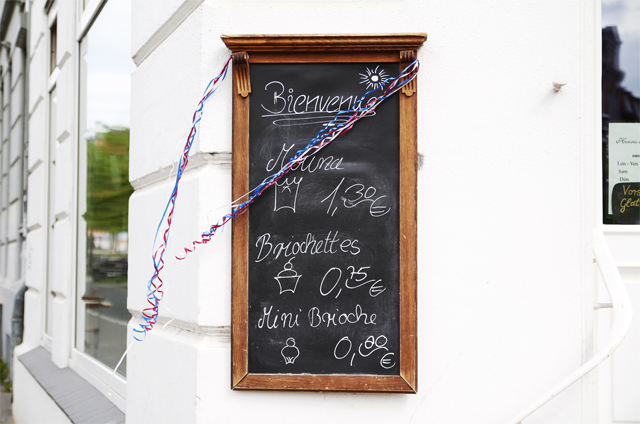 Bienvenue
Mouna
1,30 €
Briochettes
0,75 €
Mini Brioche
0,80 €
Lun - Ven
Sam
Dim
Vors